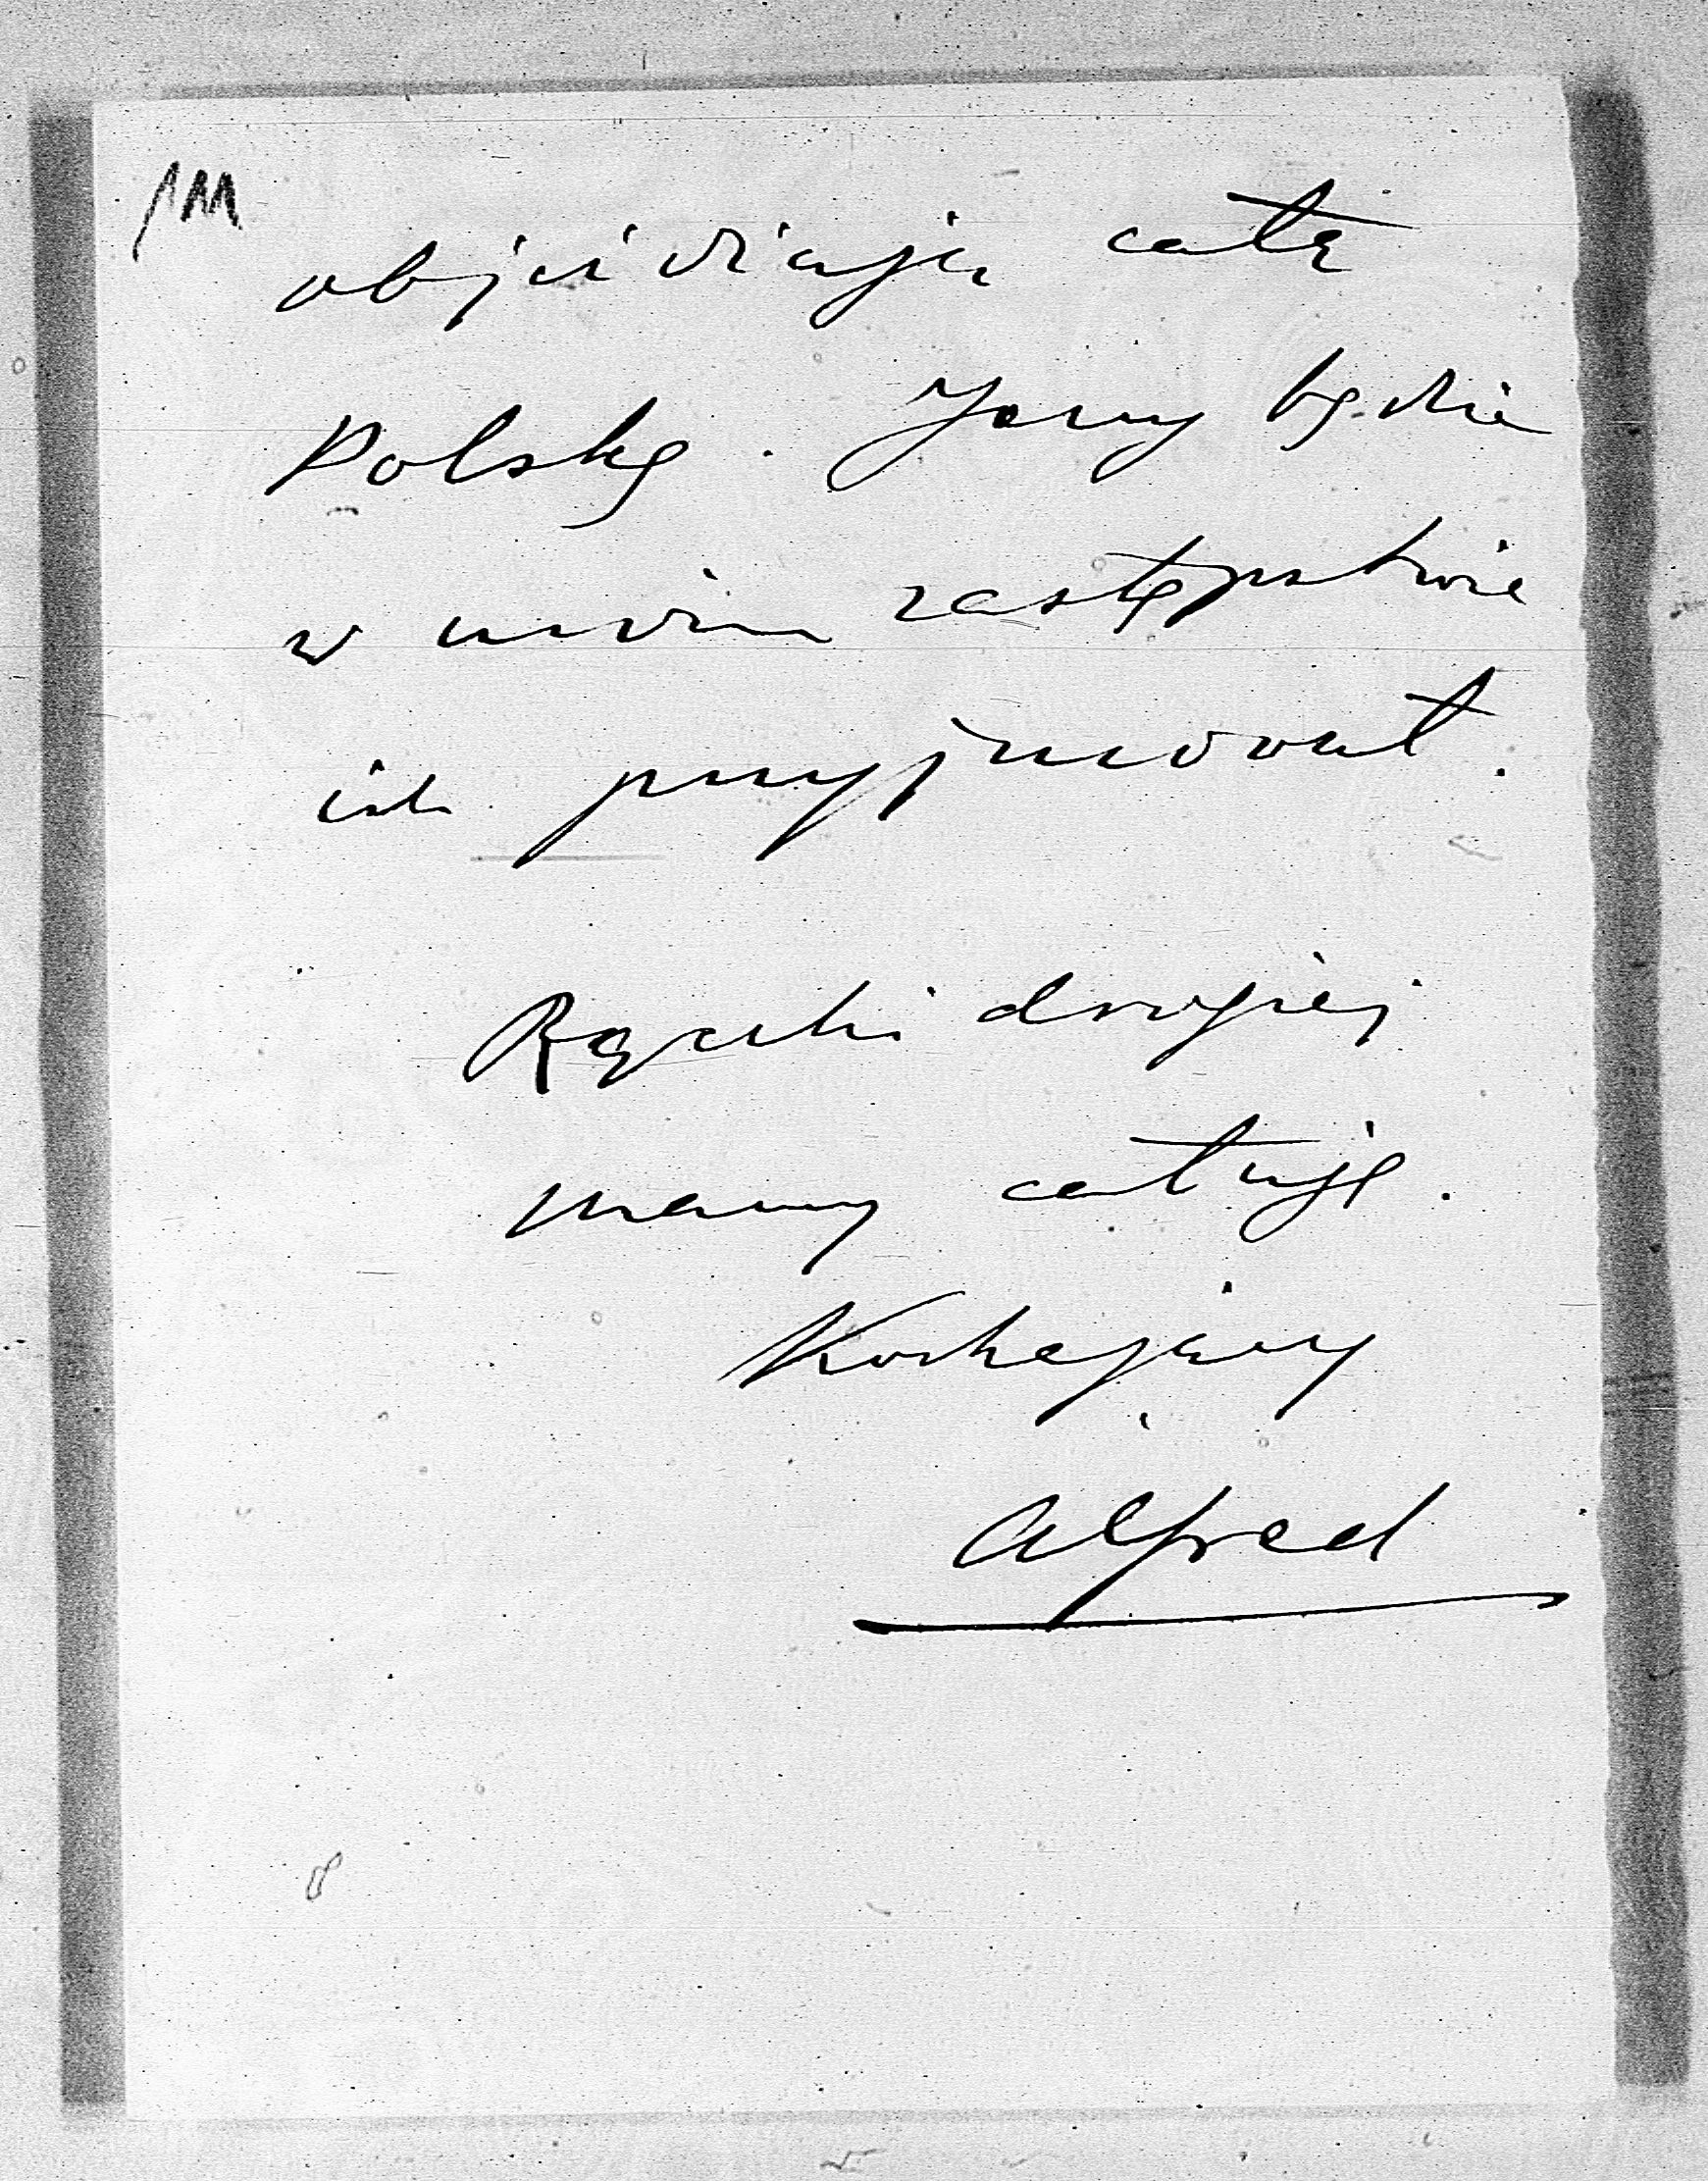 111
objeżdżają całą
Polskę. Jerzy będzie
w moim zastępstwie
ich przyjmował.
Rączki drogiej
mamy całuję.
Kochający
Alfred